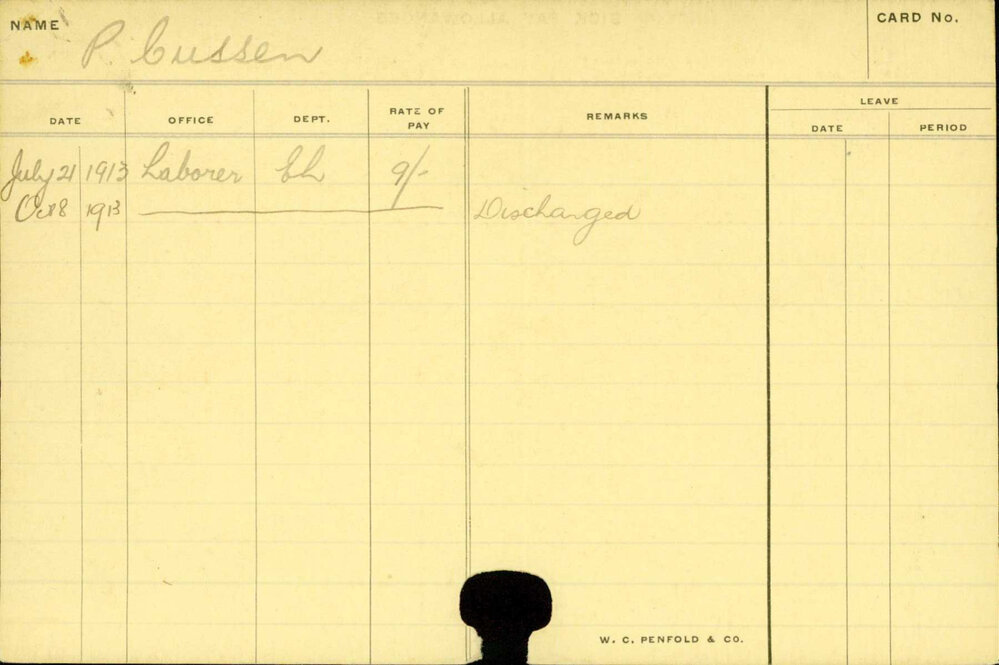 NAME P. Cussen
CARD No.
LEAVE
DATE OFFICE DEPT. RATE OF PAY REMARKS DATE PERIOD
July 21 1913 Laborer 9/-
Oct 8 1913 Discharged
W. C. PENFOLD & CO.